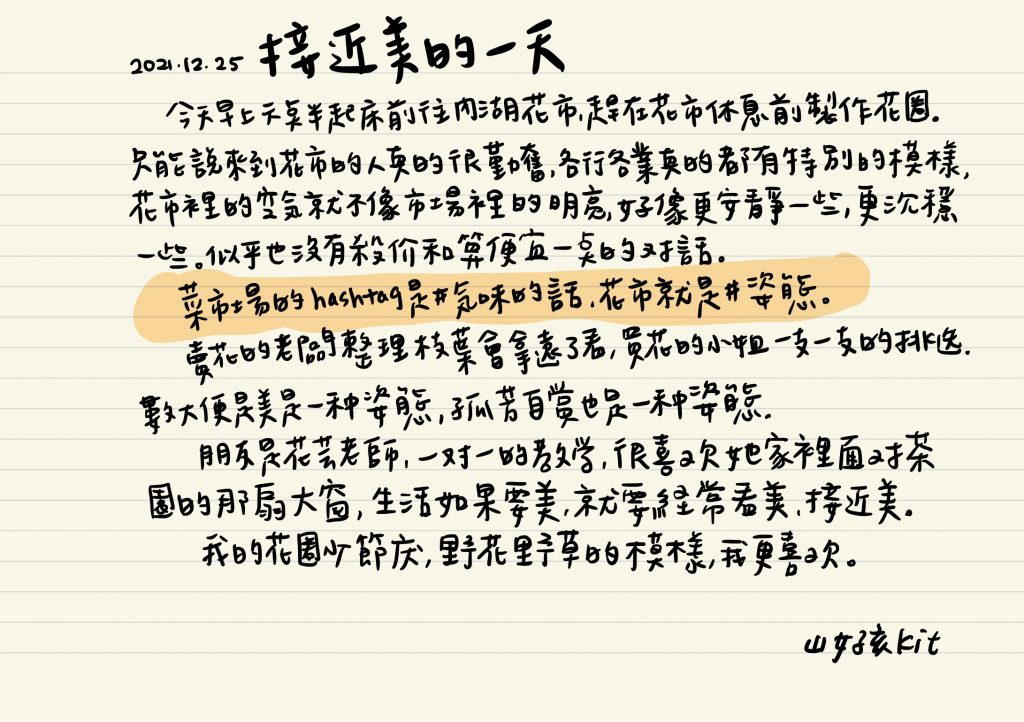 2021.12.25 接近美的一天
今天早上六点半起床前往內湖花市,趕在花市休息前製作花圈.
只能說來到花市的人真的很勤奮,各行各業真的都有特別的模樣,
花市裡的空気就不像市場裡的明亮,好像更安靜一些,更沉穩
一些。似乎也沒有殺价和算便宜一点的对話。
菜市場的hashtag是#気味的話、花市就是#姿態。
賣花的老闆整理枝葉會拿遠了看,買花的小姐一支一支的挑選.
數大便是美是一种姿態,孤芳自賞也是一种姿態.
朋友是花芸老師,一对一的教学,很喜欢她家裡面对茶
園的那扇大窗,生活如果要美,就要経常看美、接近美。
我的花圈少節庆,野花野草的模樣,我更喜欢。
山女孩kit